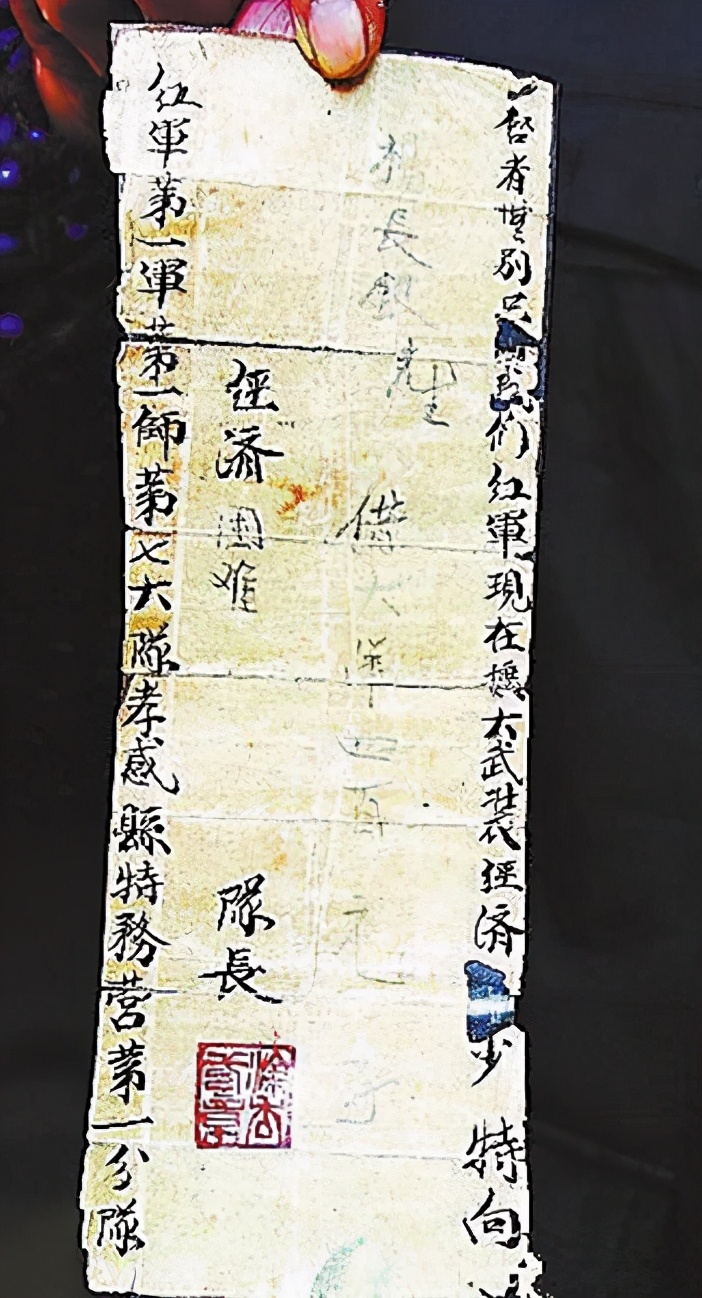 啓者無別只 我們紅軍現在擴大武裝經濟 少 特向
楊長銀先生 借大洋四百元
經濟困难 隊長
紅軍第一軍第一師第七大隊孝感縣特務营第一分隊